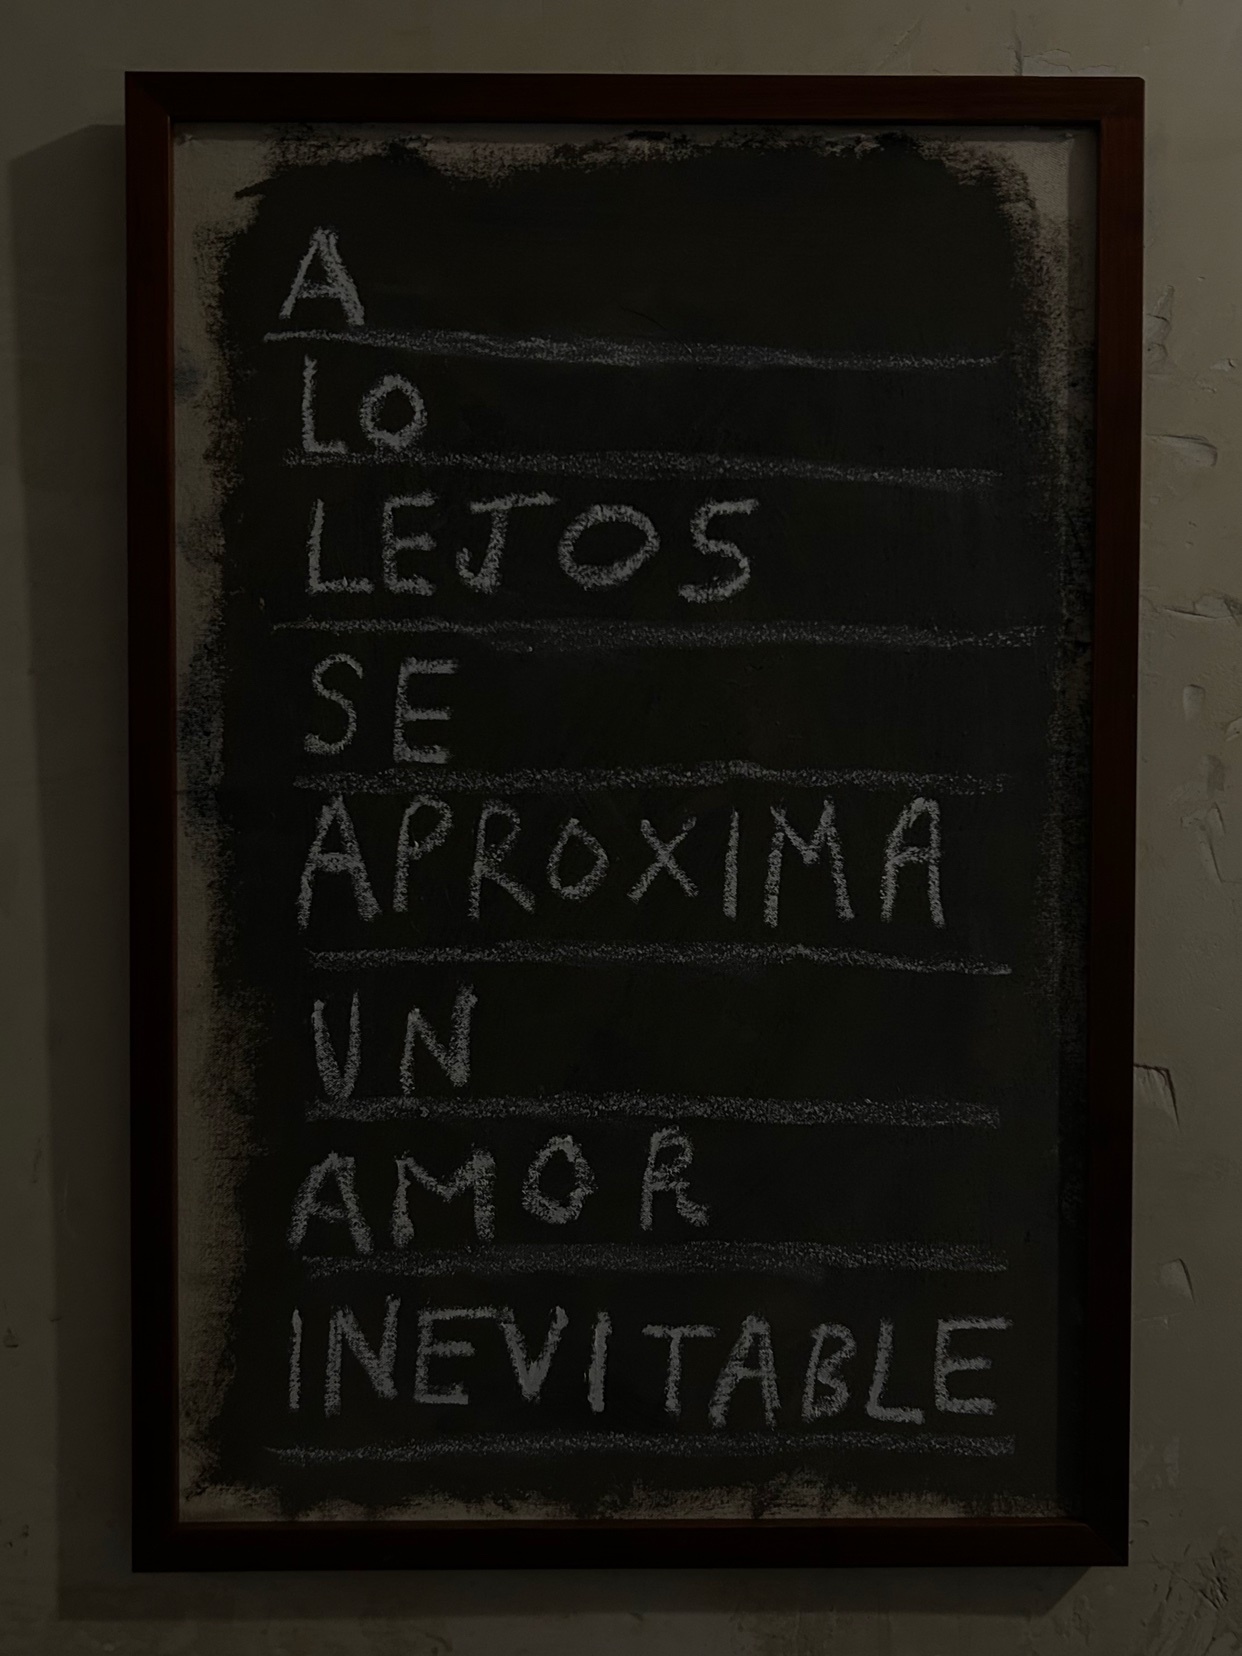 A
LO
LEJOS
SE
APROXIMA
UN
AMOR
INEVITABLE